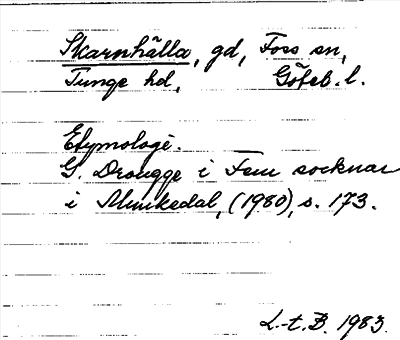 Skarnhälla, gd, Foss sn,
Tunge hd, Göteb. l.
Etymologi.
G. Drougge i Fem socknar
i Munkedal, (1980), s. 173.
L-t. B. 1983.